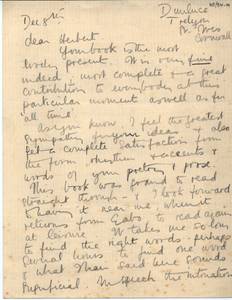 Dec 8th
Dunluce
Trelyon
St. Ives
Cornwall
dear Herbert
Your book is the most
lovely present. It is very fine
indeed, most complete & a great
contribution to everybody at this
particular moment as well as for
'all time'
As you know I feel the greatest
sympathy for your ideas & also
get complete satisfaction from
the form rhythm & accents &
words of your poetry & prose
This book was bound to read
straight through - I look forward
to having it near me, when it
returns from Gabo to read again
at leisure. It takes me so long
to find the right words - perhaps
several hours to find one word
& what I have said here sounds
superficial. In speech the intonation